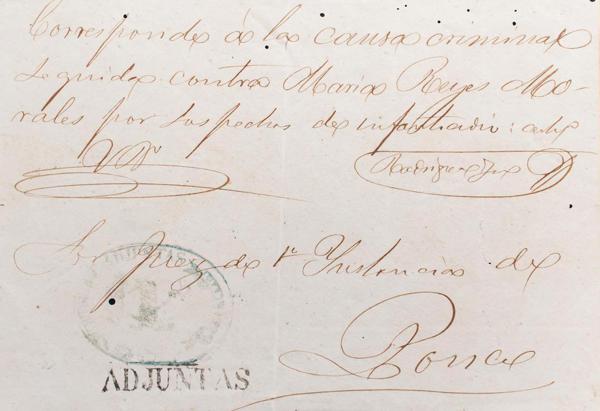 Corresponde á la causa criminal
seguida contra Maria Reyes Mo-
rales por sospechas de infanticidio:
Vº Bº
Rodriguez
Sr Juez de 1ª Instancia de
Ponce
ADJUNTAS